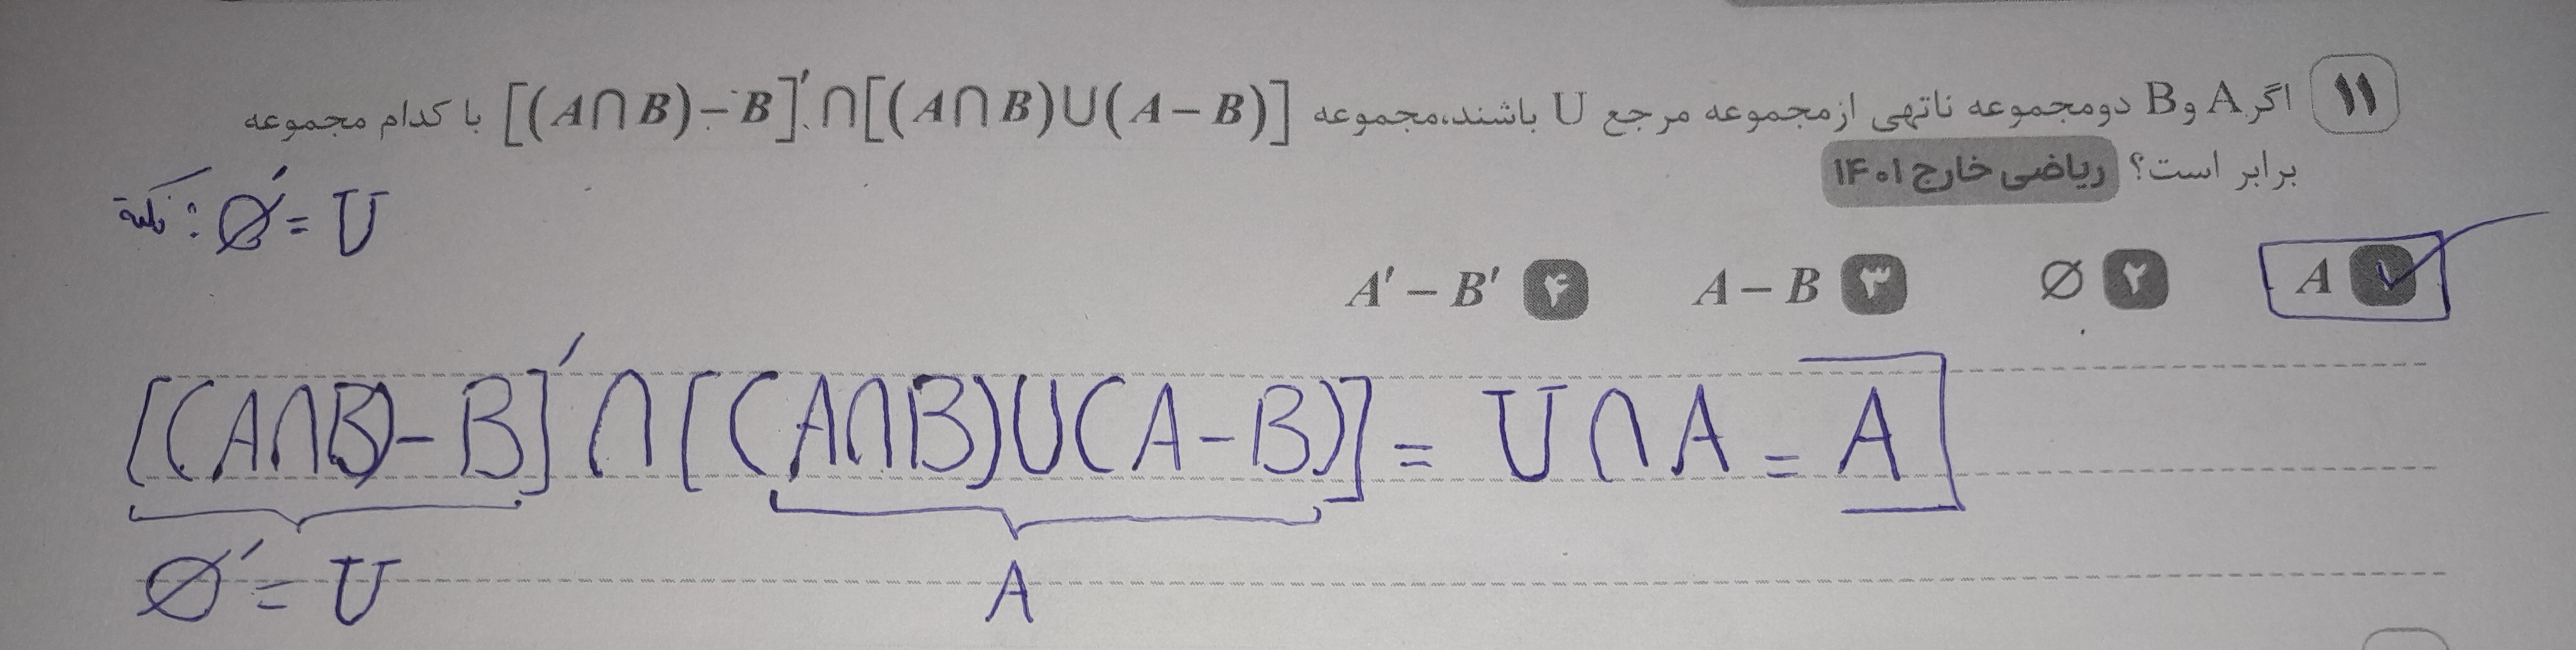 ۱۱ اگر A و B دو مجموعه ناتهی از مجموعه مرجع U باشند، مجموعه [(A∩B)−B]′∩[(A∩B)∪(A−B)] با کدام مجموعه
برابر است؟ ریاضی خارج ۱۴۰۱
نکته: ∅′ = U
۱ A ✓ ۲ ∅ ۳ A−B ۴ A′−B′
[(A∩B)−B]′∩[(A∩B)∪(A−B)] = U∩A = A
∅′ = U A